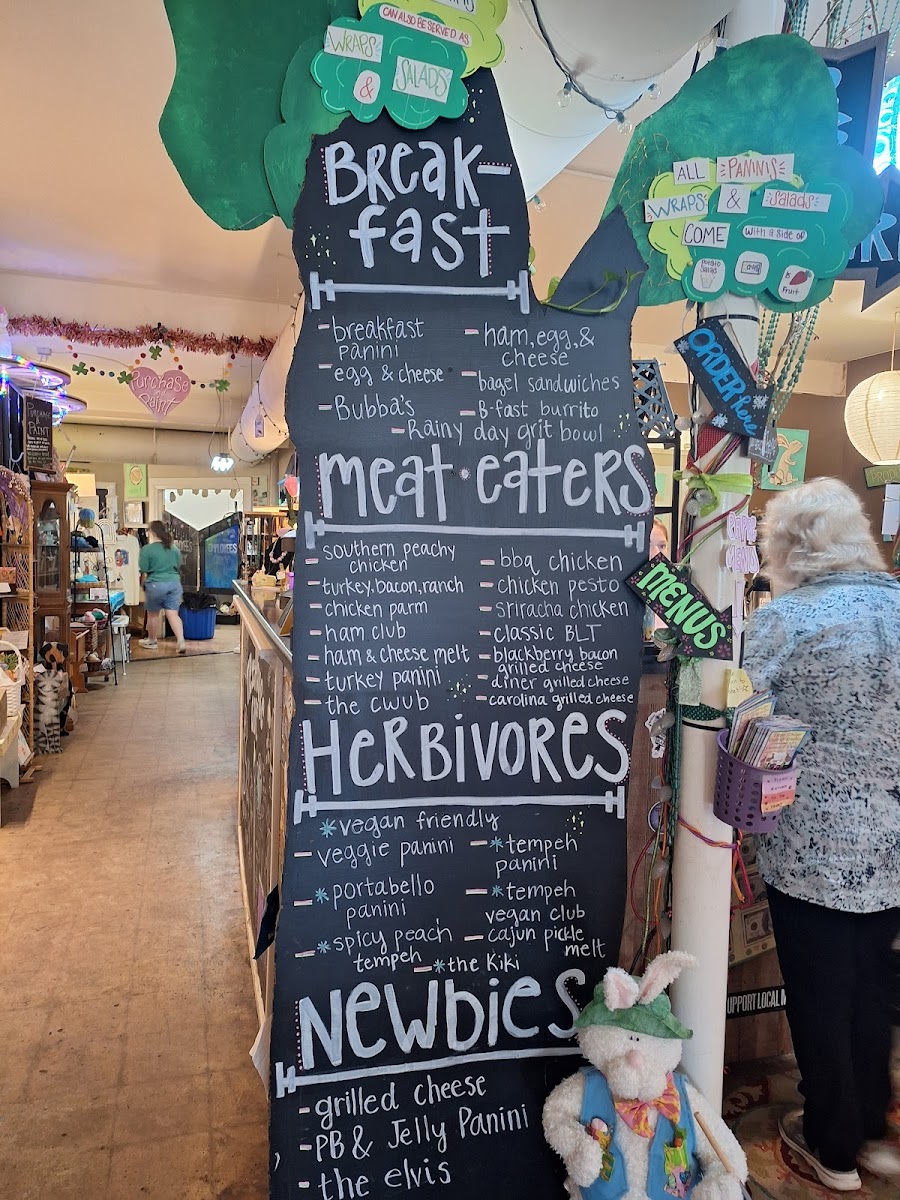 CAN ALSO BE SERVED AS
WRAPS
&
SALADS
ALL PANINIS
WRAPS & Salads
COME with a side of
Potato Salad
Fruit
Break-
fast
- breakfast panini
- egg & cheese
- Bubba's
- ham, egg, & cheese
- bagel sandwiches
- B-fast burrito
- Rainy day grit bowl
meat eaters
- southern peachy chicken
- turkey, bacon, ranch
- chicken parm
- ham club
- ham & cheese melt
- turkey panini
- the cwub
- bbq chicken
- chicken pesto
- sriracha chicken
- classic BLT
- blackberry bacon grilled cheese
- diner grilled cheese
- carolina grilled cheese
HerBivores
* vegan friendly
- veggie panini
- * portabello panini
- * spicy peach tempeh
- * tempeh panini
- * tempeh vegan club
- cajun pickle melt
- * the Kiki
Newbies
- grilled cheese
- PB & Jelly Panini
- the elvis
ORDER here
MENUS
Purchase
Paint
SUPPORT LOCAL